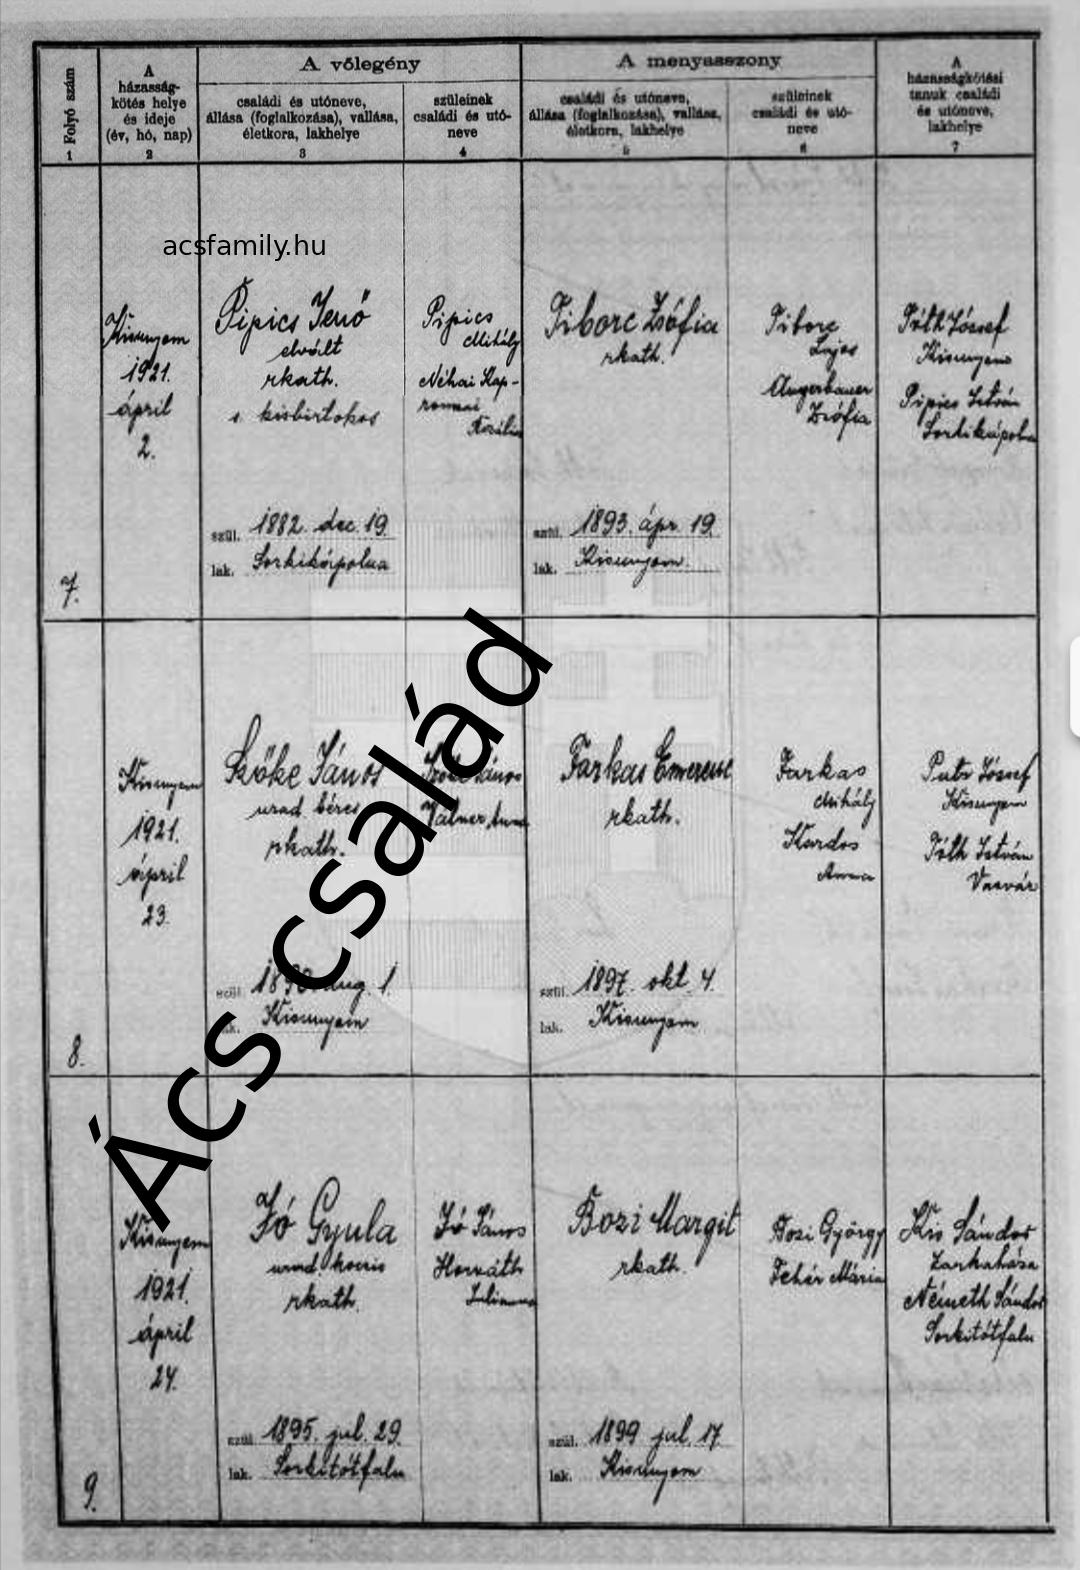 Folyó szám
1
A
házasság-
kötés helye
és ideje
(év, hó, nap)
2
A vőlegény
családi és utóneve,
állása (foglalkozása), vallása,
életkora, lakhelye
3
szüleinek
családi és utó-
neve
4
A menyasszony
családi és utóneve,
állása (foglalkozása), vallása,
életkora, lakhelye
5
szüleinek
családi és utó-
neve
6
A
házasságkötési
tanuk családi
és utóneve,
lakhelye
7
acsfamily.hu
7.
Kisunyom
1921.
április
2.
Pipics Jenő
elvált
rkath.
s. kisbirtokos
szül. 1882. dec. 19.
lak. Sorkikápolna
Pipics
Mihály
Néhai Kap-
Rozália
Tiborc Zsófia
rkath.
szül. 1893. ápr. 19.
lak. Kisunyom.
Tiborc
Lajos
Angerbauer
Zsófia
Tóth József
Kisunyom
Pipics István
Sorkikápolna
8.
Kisunyom
1921.
április
23.
Szőke János
urad. béres
rkath.
szül. aug. 1.
lak. Kisunyom
Szőke János
Anna
Farkas Emerenc
rkath.
szül. 1897. okt. 4.
lak. Kisunyom
Farkas
Mihály
Kardos
Anna
József
Kisunyom
Tóth István
Vasvár
9.
Kisunyom
1921.
április
24.
Jó Gyula
urad. kocsis
rkath.
szül. 1895. jul. 29.
lak. Sorkitótfalu
Jó János
Horváth
Julianna
Bozi Margit
rkath.
szül. 1899 jul. 17
lak. Kisunyom
Bozi György
Fehér Mária
Kis Sándor
Zarkaháza
Németh Sándor
Sorkitótfalu
Ács család